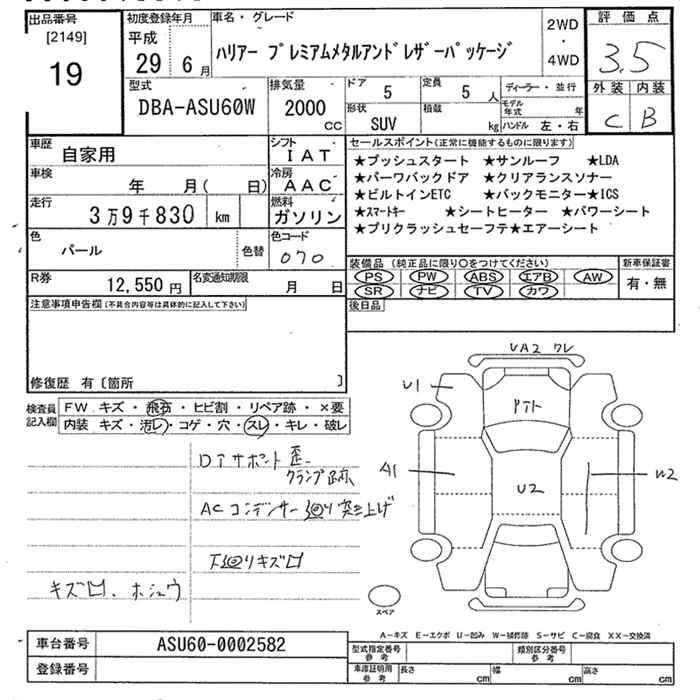 出品番号
[2149]
19
初度登録年月
平成
29 6月
車名・グレード
ハリアー プレミアムメタルアンドレザーパッケージ
2WD
・
4WD
評価点
3.5
外装 内装
C B
型式
DBA-ASU60W
排気量
2000
CC
ドア
5
定員
5 人
形状
SUV
積載
kg
ディーラー・並行
モデル年式 年
ハンドル 左・右
車歴
自家用
シフト
IAT
車検
年 月( 日)
冷房
AAC
走行
3万9千830 km
燃料
ガソリン
色
パール
色替
色コード
070
R券
12,550円
名変通知期限
月 日
セールスポイント(正常に機能するものに限ります)
★プッシュスタート ★サンルーフ ★LDA
★パーワバックドア ★クリアランスソナー
★ビルトインETC ★バックモニター★ICS
★スマートキー ★シートヒーター ★パワーシート
★プリクラッシュセーフテ★エアーシート
装備品 (純正品に限り○をつけてください)
PS PW ABS エアB AW
SR ナビ TV カワ
新車保証書
有・無
後日品
注意事項申告欄(不具合内容等は具体的に記入して下さい)
修復歴 有〔箇所 〕
検査員記入欄
FW キズ・飛石・ヒビ割・リペア跡・×要
内装 キズ・汚レ・コゲ・穴・スレ・キレ・破レ
Dアサポート歪
クランプ跡
ACコンデンサー廻り突き上げ
下廻りキズ
キズ 、ホシュウ
UA2 ワレ
U1
A1
U2
W2
スペア
A-キズ E-エクボ U-凹み W-補修跡 S-サビ C-腐食 XX-交換済
車台番号
ASU60-0002582
登録番号
型式指定番号
参考
類別区分番号
参考
車庫証明用
参考
長さ cm
幅 cm
高さ cm